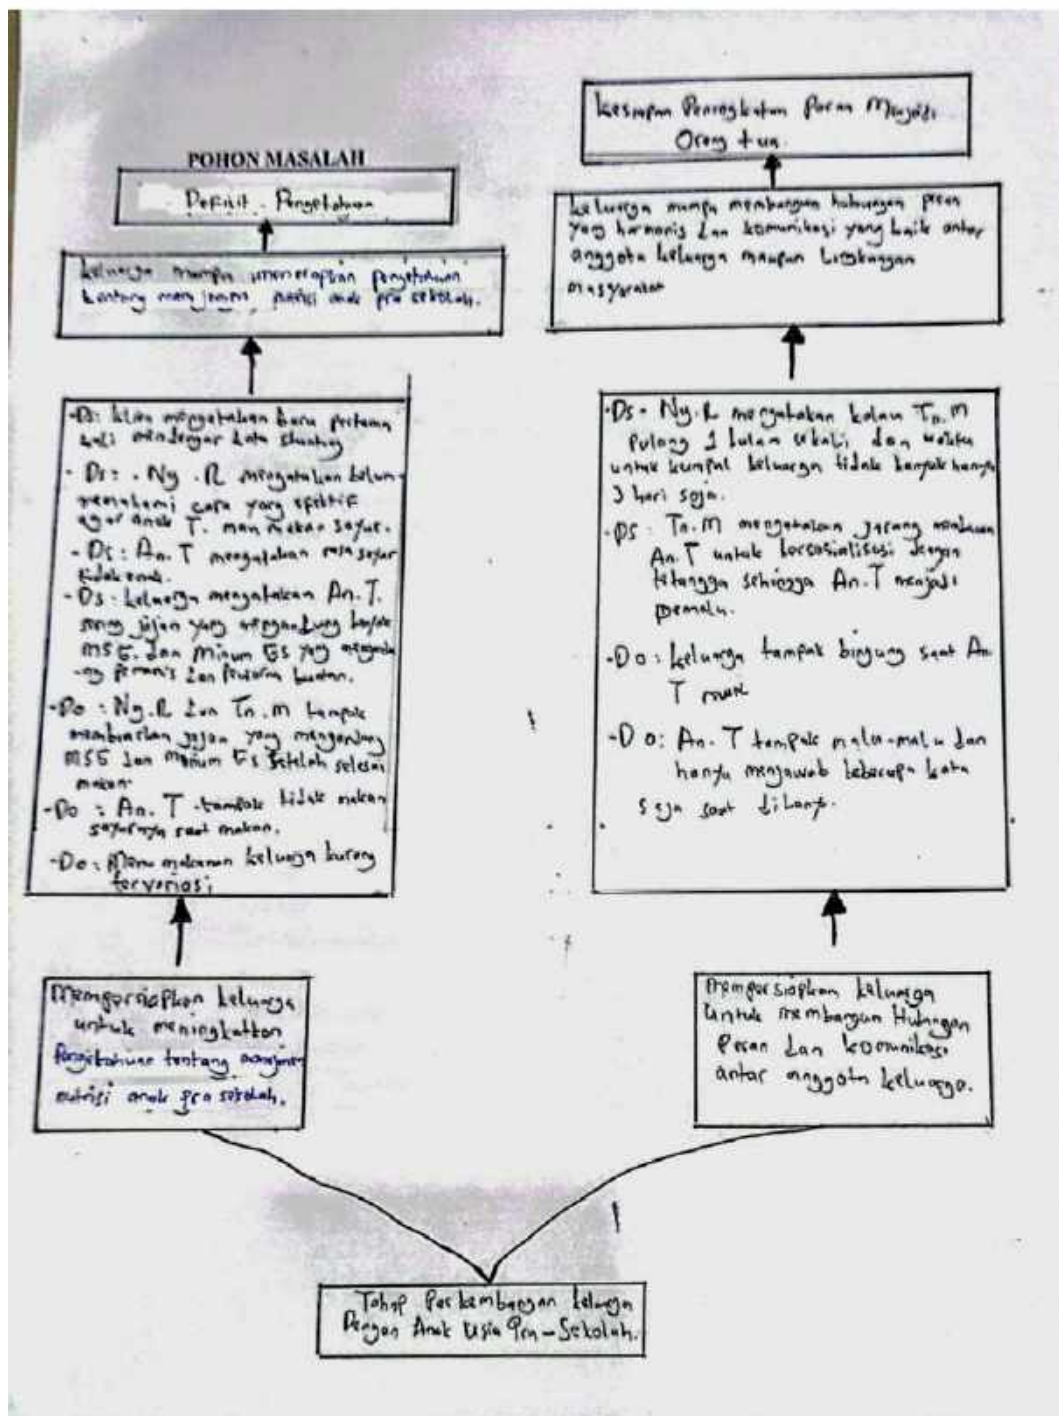 POHON MASALAH
Defisit Pengetahuan
keluarga mampu menerapkan pengetahuan
tentang manajemen nutrisi anak pra sekolah.
-Ds: klien mengatakan baru pertama
kali mendengar kata stunting
- Ds: . Ny . R mengatakan belum
memahami cara yang efektif
agar anak T. mau makan sayur.
- Ds : An. T mengatakan rasa sayur
tidak enak.
- Ds : keluarga mengatakan An. T.
sering jajan yang mengandung banyak
MSG. dan Minum Es yang mengandu
-ng pemanis dan pewarna buatan.
-Do : Ny. R dan Tn. M tampak
membiarkan jajan yang mengandung
MSG dan Minum Es setelah selesai
makan
-Do : An. T tampak tidak makan
sayurnya saat makan.
-Do : Menu makanan keluarga kurang
bervariasi
Mempersiapkan keluarga
untuk meningkatkan
Pengetahuan tentang manajemen
nutrisi anak pra sekolah.
Kesiapan Peningkatan Peran Menjadi
Orang tua.
keluarga mampu membangun hubungan peran
yang harmonis dan komunikasi yang baik antar
anggota keluarga maupun Lingkungan
masyarakat
-Ds - Ny. R mengatakan kalau Tn. M
pulang 1 bulan sekali, dan waktu
untuk kumpul keluarga tidak banyak hanya
3 hari saja.
-DS : Tn. M mengatakan jarang membawa
An. T untuk bersosialisasi dengan
tetangga sehingga An. T menjadi
pemalu.
-Do : keluarga tampak bingung saat An.
T
-Do : An. T tampak malu-malu dan
hanya menjawab beberapa kata
saja saat ditanya.
Mempersiapkan keluarga
Untuk membangun Hubungan
Peran dan komunikasi
antar anggota keluarga.
Tahap Perkembangan keluarga
Dengan Anak Usia Pra-Sekolah.